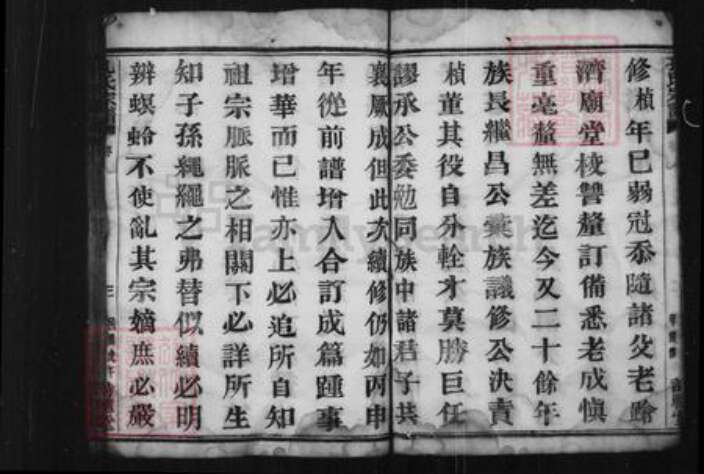 修楨年已弱冠忝隨諸父老蹌
濟廟堂校讐釐訂備悉老成愼
重毫釐無差迄今又二十餘年
族長繼昌公彚族議修公決責
楨董其役自分輇才莫勝巨任
謬承公委勉同族中諸君子共
襄厥成但此次續修仍如丙申
年從前譜增入合訂成篇踵事
增華而已惟亦上必追所自知
祖宗脈脈之相關下必詳所生
知子孫繩繩之弗替似續必明
辨螟蛉不使亂其宗嫡庶必嚴